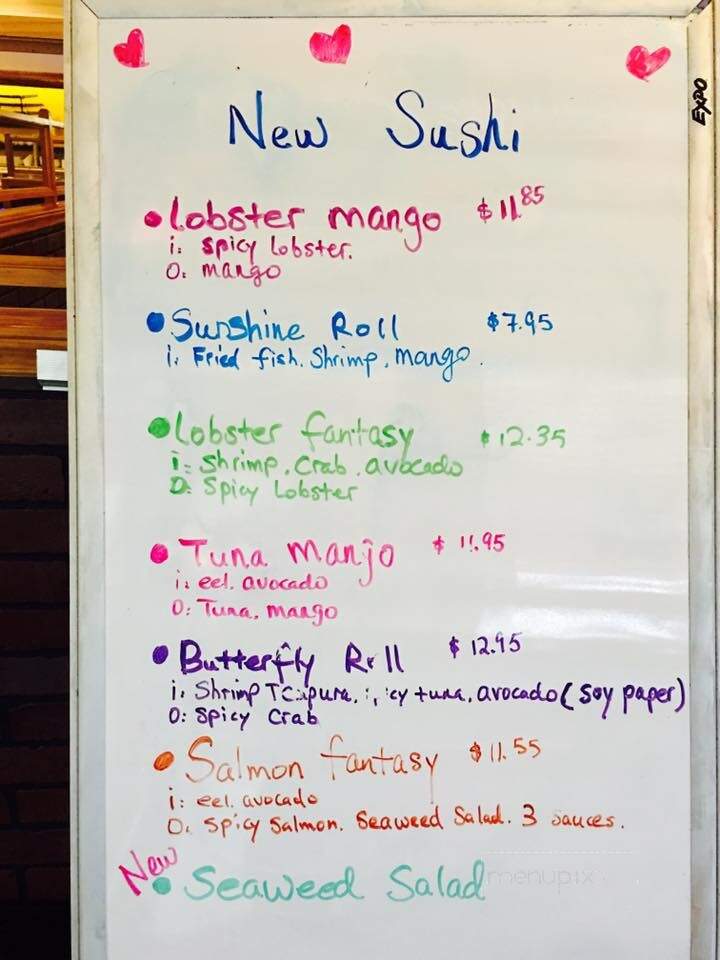 New Sushi
EXPO
• Lobster mango $11.85
i: spicy lobster.
O: mango
• Sunshine Roll $7.95
i. Fried fish. Shrimp, mango.
• Lobster fantasy $12.35
i: Shrimp. Crab. avocado
O: Spicy Lobster
• Tuna Manjo $11.95
i: eel. avocado
O: Tuna, mango
• Butterfly Roll $12.95
i. Shrimp tuna, avocado (soy paper)
O: Spicy Crab
• Salmon fantasy $11.55
i: eel. avocado
O. Spicy Salmon. Seaweed Salad. 3 sauces.
New
• Seaweed Salad
menupix